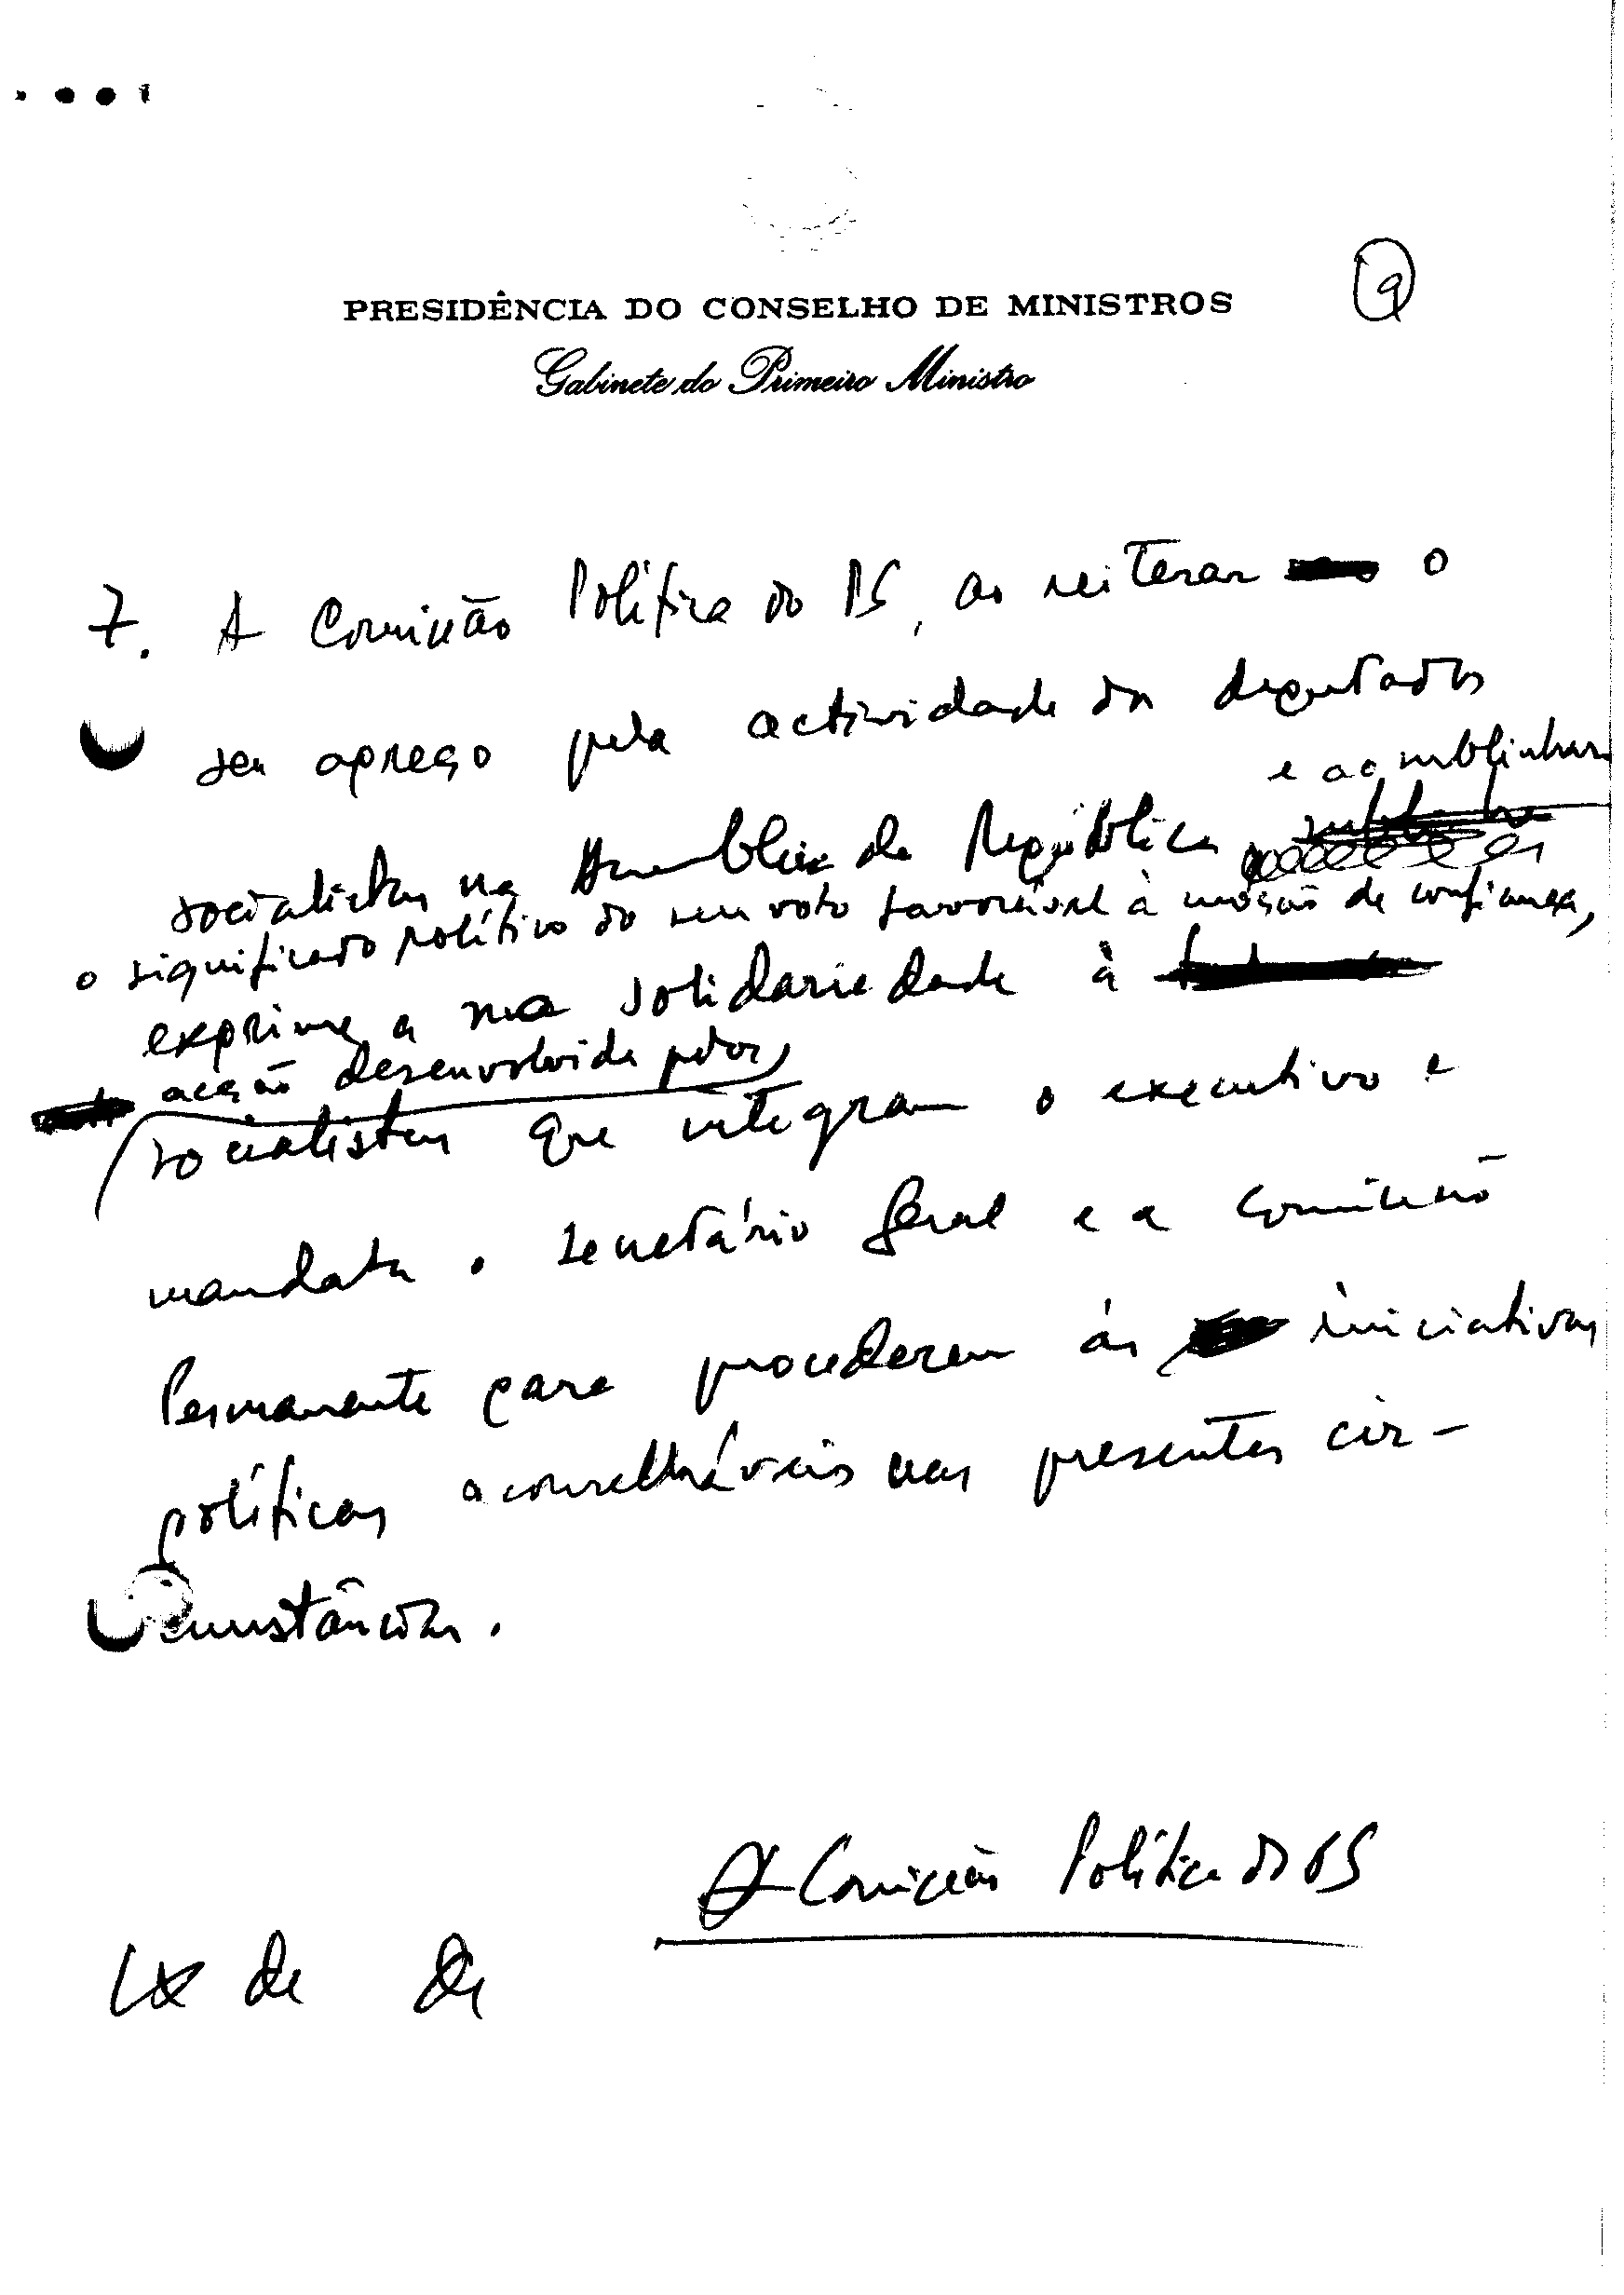 PRESIDÊNCIA DO CONSELHO DE MINISTROS
9
Gabinete do Primeiro Ministro
7. A Comissão Política do PS, ao reiterar o
seu apreço pela actividade dos deputados
e ao sublinhar
socialistas na Assembleia da República
o significado político do seu voto favorável à moção de confiança,
exprime a sua solidariedade à
acção desenvolvida pelos
socialistas que integram o executivo e
mandata o Secretário Geral e a Comissão
Permanente para procederem às iniciativas
políticas aconselháveis nas presentes cir-
cunstâncias.
A Comissão Política do PS
Lx de de